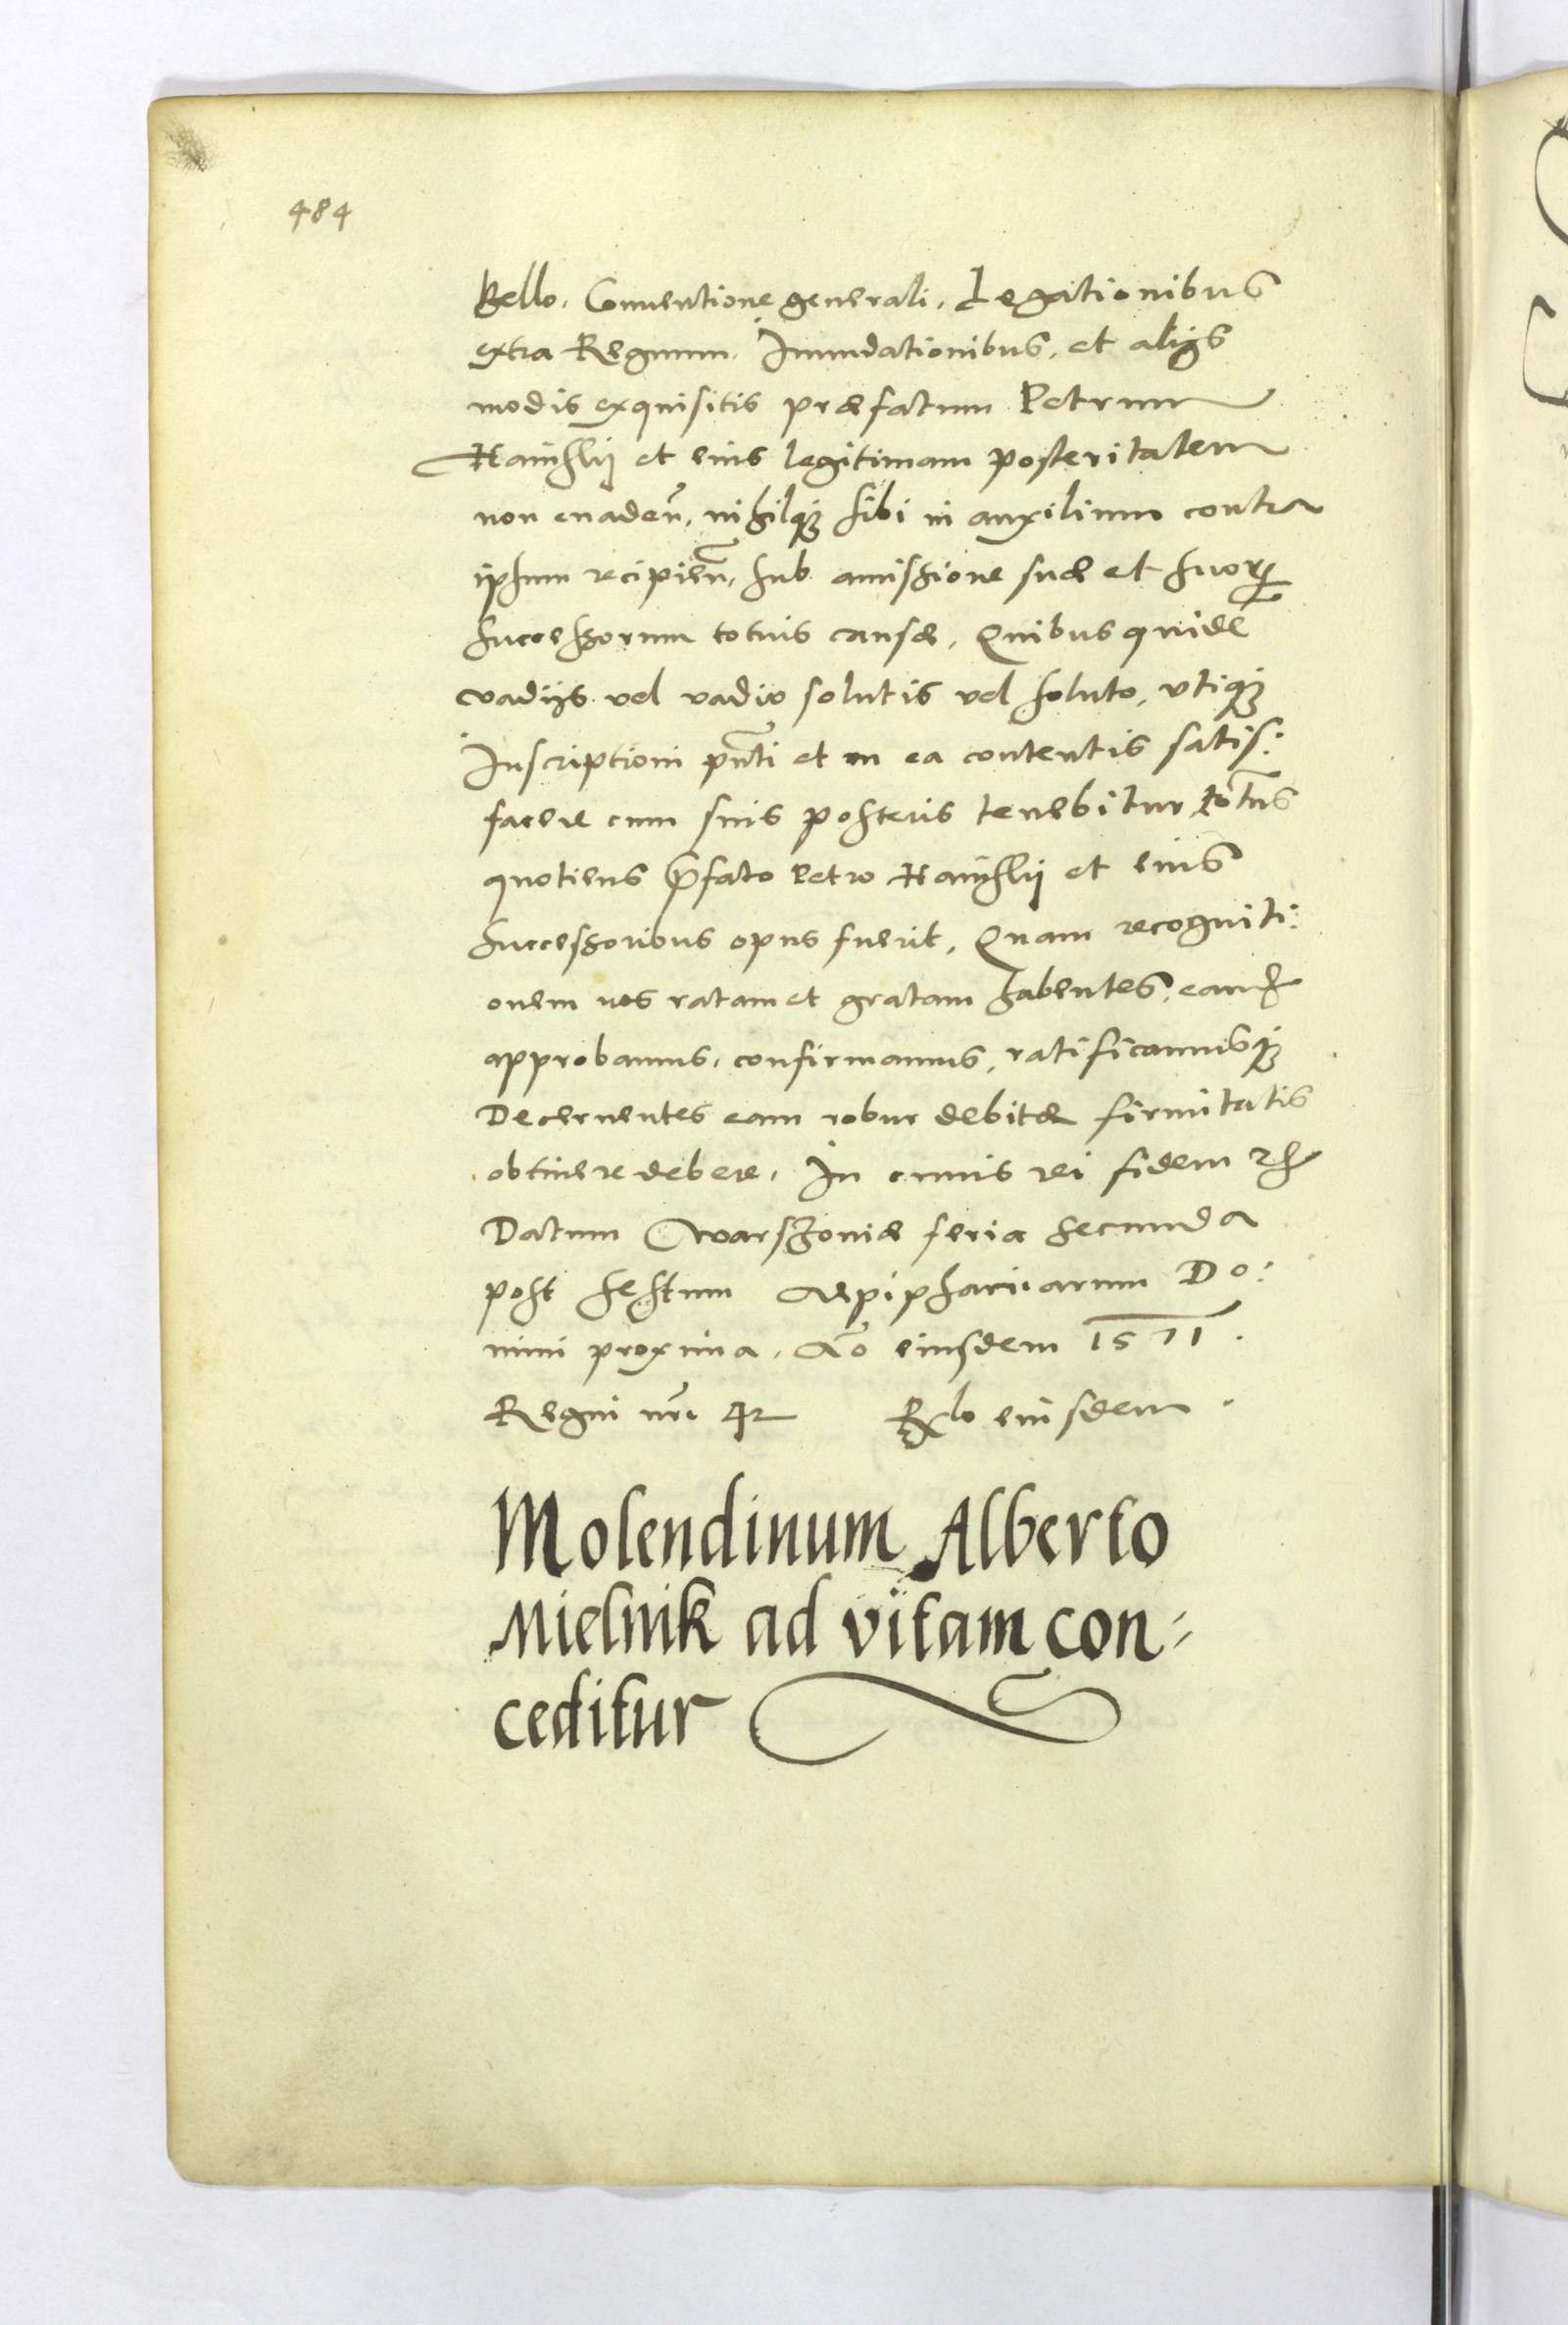 484
Bello. Conuentione generali. Legationibus
extra Regnum. Inundationibus, et alijs
modis exquisitis præfatum Petrum
et eius legitimam posteritatem
non euadeñ, nihilq; sibi in auxilium contra
ipsum recipieñ, sub amissione suæ et suor
successorum totius causæ. Quibus quidē
vadijs vel vadio solutis vel soluto, vtiq;
Inscriptioni pñti et in ea contentis satis:
facere cum suis posteris tenebitur totiens
quotiens p̄fato Petro et eius
successoribus opus fuerit. Quam recogniti:
onem nos ratam et gratam habentes, eand
approbamus, confirmamus, ratificamusq;
Decernentes eam robur debitæ firmitatis
obtinere debere. In cuius rei fidem etc
Datum Warszouiæ feria secunda
post festum Aepiphaniarum Do:
mini proxima. Aõ eiusdem 1571.
Regni nri 42 Rlo eiusdem.
Molendinum Alberto
Mielnik ad vitam con=
ceditur